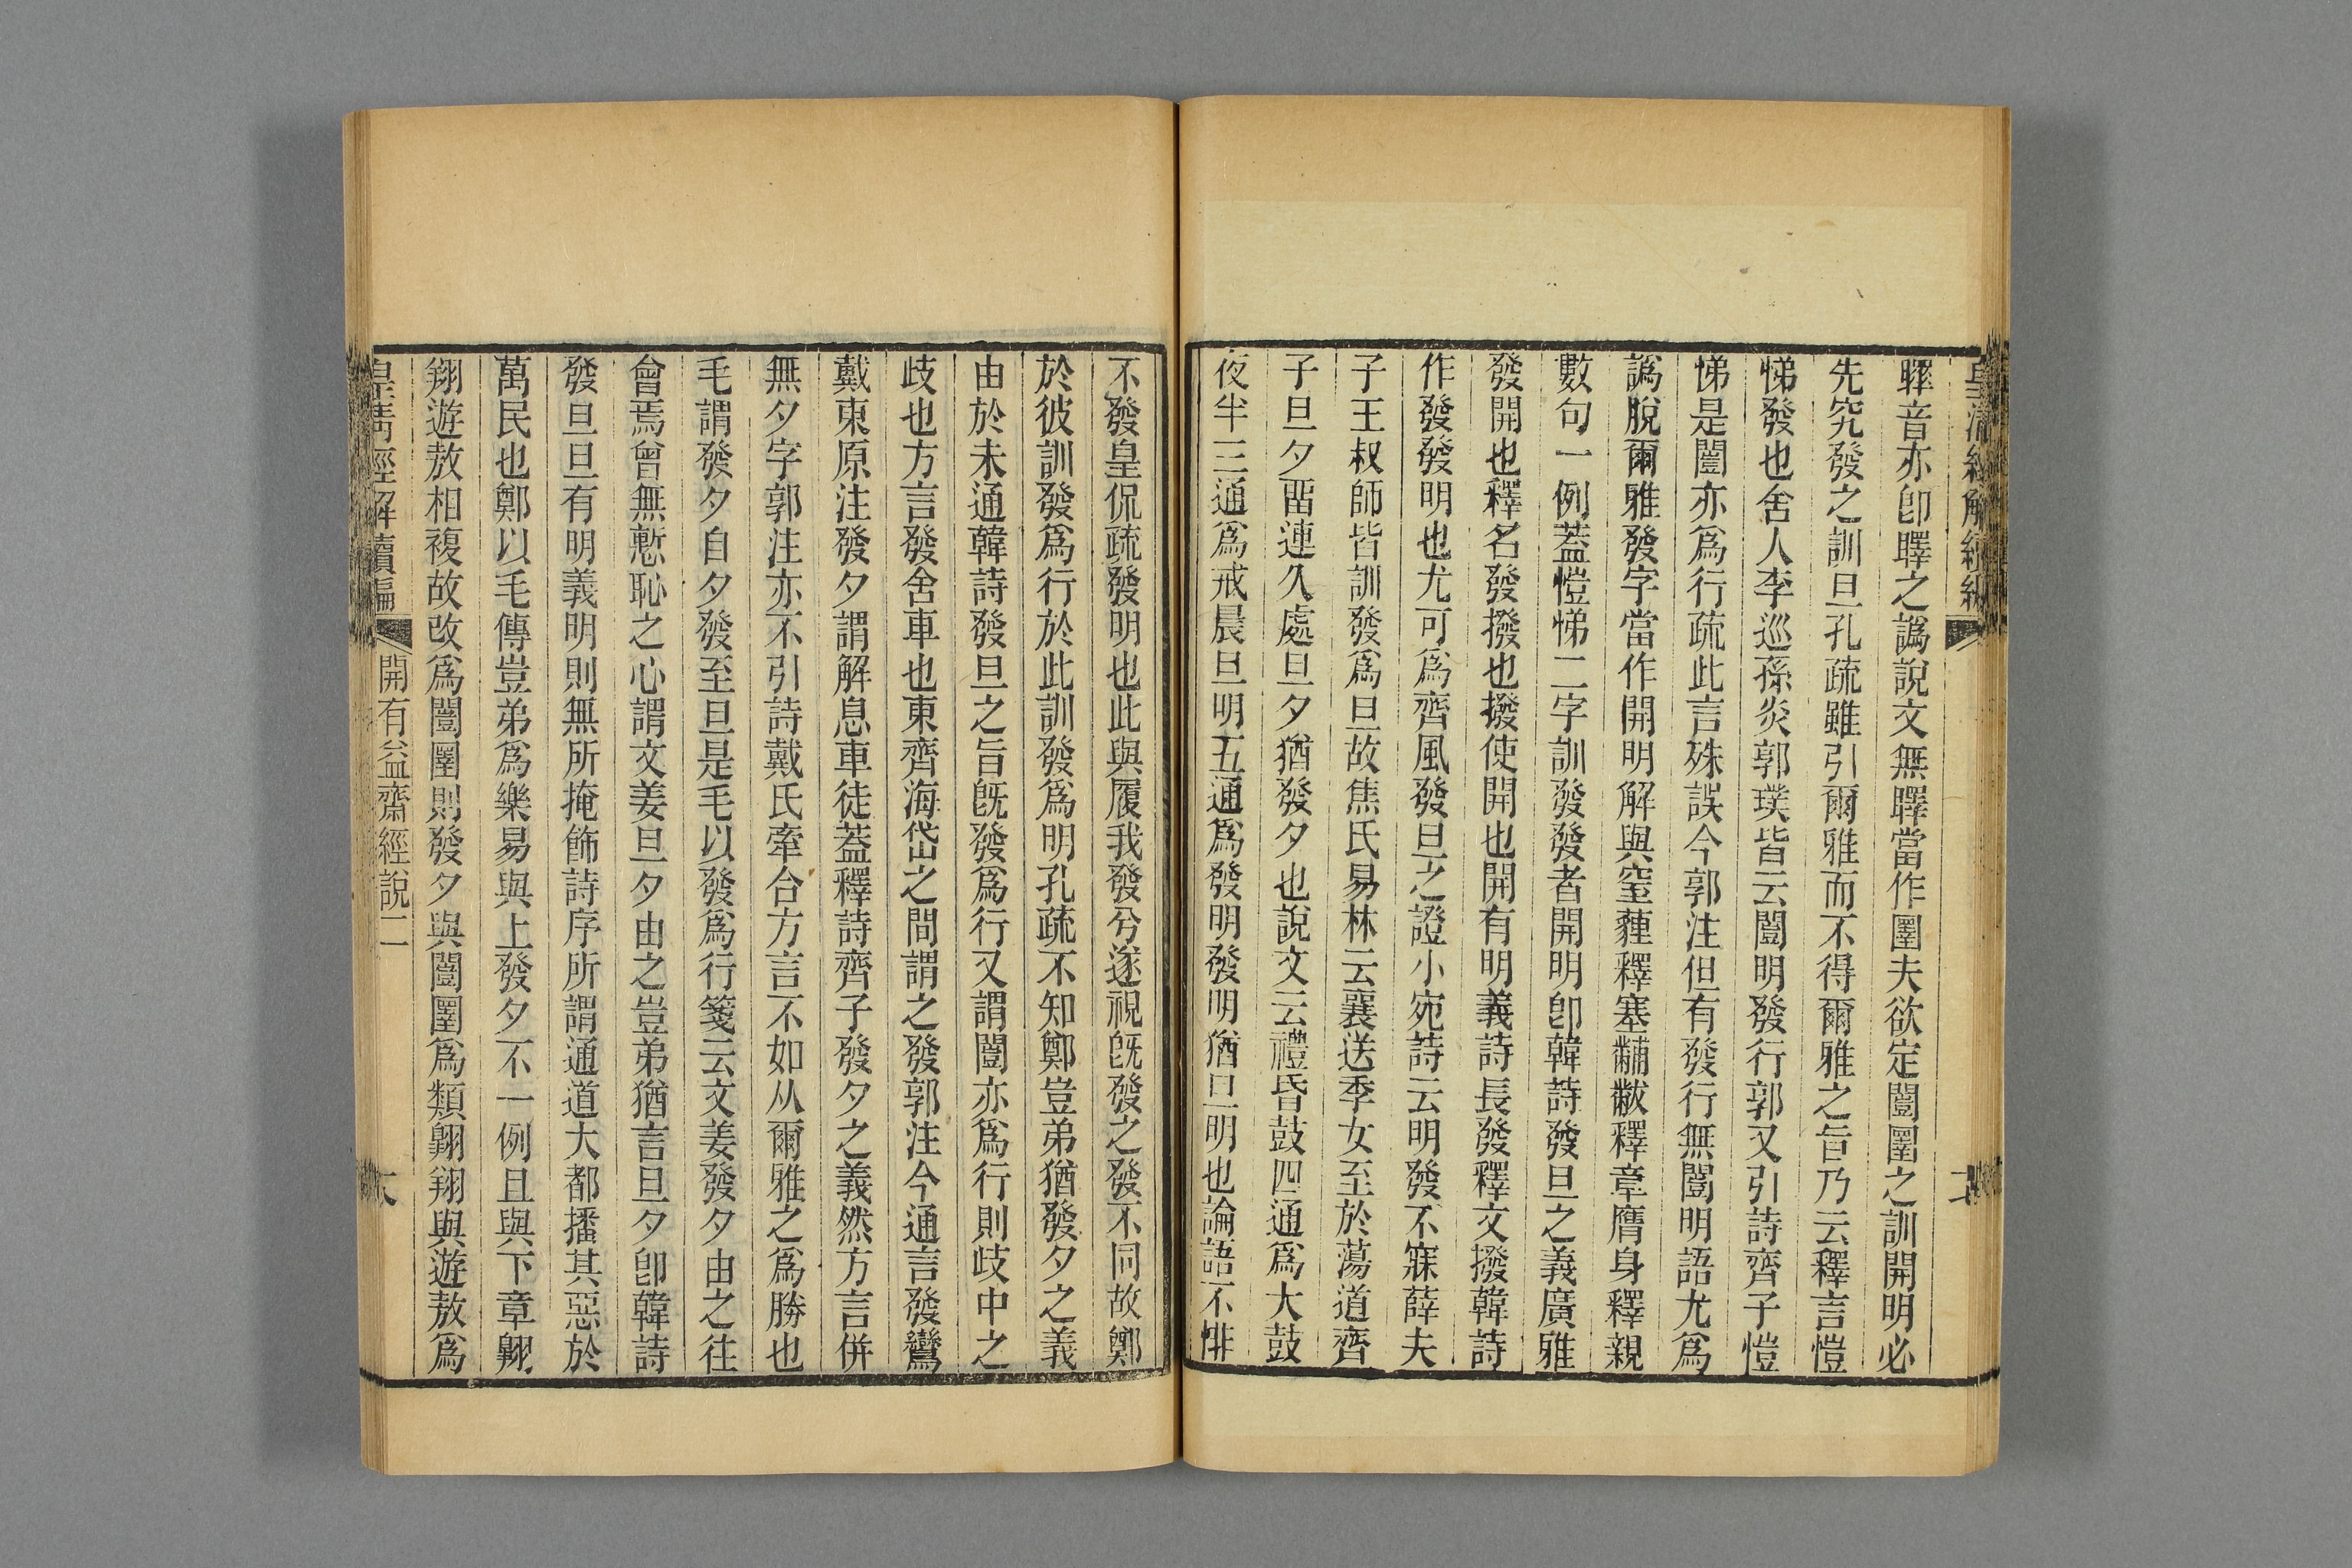 皇清經解續編
曎音亦卽曎之譌說文無曎當作圛夫欲定闓圛之訓開明必
先究發之訓旦孔疏雖引爾雅而不得爾雅之旨乃云釋言愷
悌發也舍人李巡孫炎郭璞皆云闓明發行郭又引詩齊子愷
悌是闓亦爲行疏此言殊誤今郭注但有發行無闓明語尤爲
譌脫爾雅發字當作開明解與窒薶釋塞黼黻釋章膺身釋親
數句一例蓋愷悌二字訓發發者開明卽韓詩發旦之義廣雅
發開也釋名發撥也撥使開也開有明義詩長發釋文撥韓詩
作發發明也尤可爲齊風發旦之證小宛詩云明發不寐薛夫
子王叔師皆訓發爲旦故焦氏易林云襄送季女至於蕩道齊
子旦夕畱連久處旦夕猶發夕也說文云禮昏鼓四通爲大鼓
夜半三通爲戒晨旦明五通爲發明發明猶旦明也論語不悱
不發皇侃疏發明也此與履我發兮遂視旣發之發不同故鄭
於彼訓發爲行於此訓發爲明孔疏不知鄭豈弟猶發夕之義
由於未通韓詩發旦之旨旣發爲行又謂闓亦爲行則歧中之
歧也方言發舍車也東齊海岱之間謂之發郭注今通言發鸞
戴東原注發夕謂解息車徒蓋釋詩齊子發夕之義然方言併
無夕字郭注亦不引詩戴氏牽合方言不如从爾雅之爲勝也
毛謂發夕自夕發至旦是毛以發爲行箋云文姜發夕由之往
會焉曾無慙恥之心謂文姜旦夕由之豈弟猶言旦夕卽韓詩
發旦旦有明義明則無所掩飾詩序所謂通道大都播其惡於
萬民也鄭以毛傳豈弟爲樂易與上發夕不一例且與下章翺
翔遊敖相複故改爲闓圛則發夕與闓圛爲類翺翔與遊敖爲
皇清經解續編 開有益齋經說二